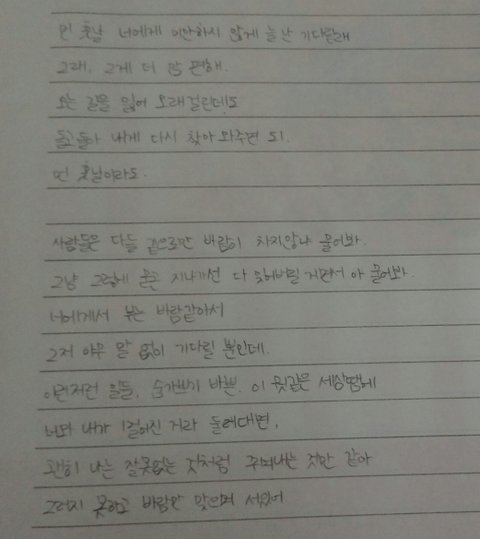 먼 훗날 너에게 미안하지 않게 늘 난 기다릴래
그래, 그게 더 맘 편해.
오는 길을 잃어 오래걸린데도
돌고돌아 내게 다시 찾아 와주면 되.
먼 훗날이라도.
사람들은 다들 겉으로만 바람이 차지않냐 물어봐.
그냥 그렇게 문득 지나가선 다 잊어버릴 거면서 아 물어봐.
너에게서 부는 바람같아서
그저 아무 말 없이 기다릴 뿐인데.
이런저런 일들, 숨가쁘기 바쁜. 이 뭣같은 세상땜에
너와 내가 멀어진 거라 둘러대면,
괜히 나는 잘못없는 것처럼 꾸며내는 것만 같아
그러지 못하고 바람만 맞으며 서있어